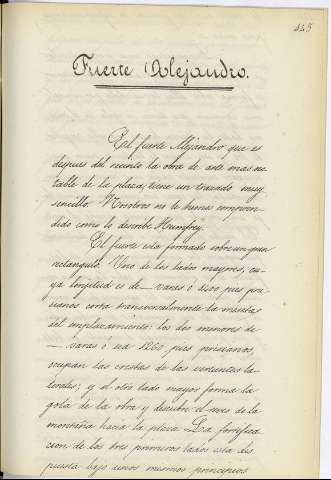 Fuerte Alejandro.
El fuerte Alejandro que es
despues del recinto la obra de arte mas no-
table de la plaza, tiene un trazado muy
sencillo. Nosotros no le hemos compren-
dido como lo describe Humfrey.
El fuerte esta formado sobre un gran
rectangulo. Uno de los lados mayores, cu-
ya longitud es de — varas ó pies pari-
sianos corta transversalmente la meseta
del emplazamiento: los dos menores de
— varas ó sea 1260 pies parisianos
ocupan las crestas de las vertientes la-
terales; y el otro lado mayor forma la
gola de la obra y descubre el de la
montaña hacia la plaza. La fortifica
cion de los tres primeros lados esta dis
puesta bajo unos mismos principios